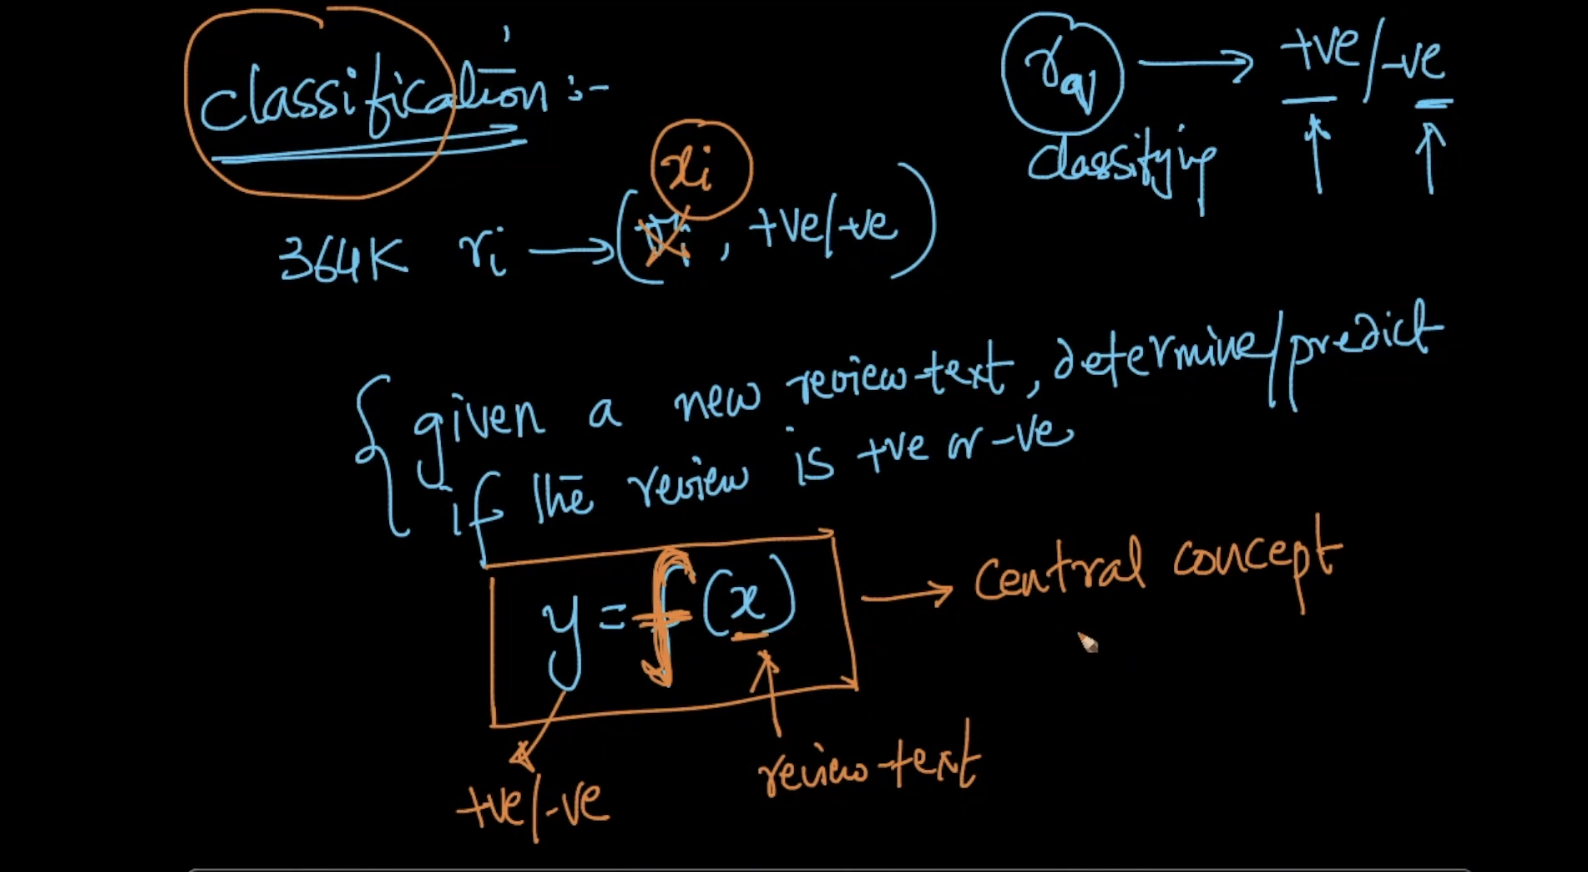 classification :-
r_q → +ve/-ve
classifying
x_i
364K r_i → ( , +ve/-ve)
{ given a new review text, determine/predict
if the review is +ve or -ve
y = f(x) → central concept
review text
+ve/-ve